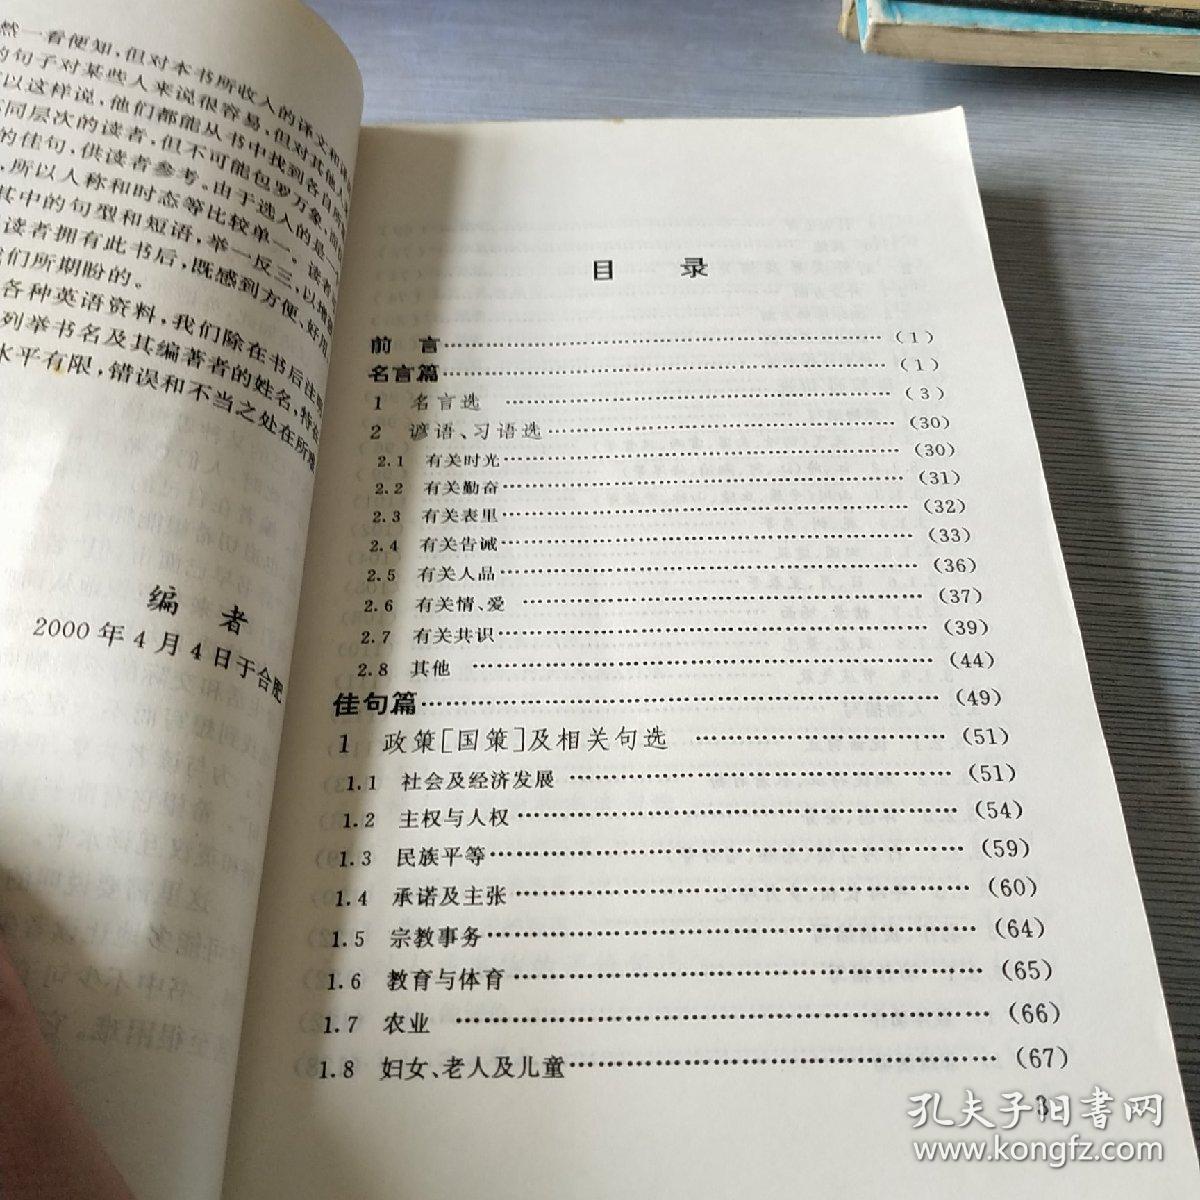 然一看便知,但对本书所收入的译文和
的句子对某些人来说很容易,但对其他人
以这样说,他们都能从书中找到各自所
同层次的读者,但不可能包罗万象,而
的佳句,供读者参考。由于选入的是一
,所以人称和时态等比较单一。读者
其中的句型和短语,举一反三,以增
读者拥有此书后,既感到方便、好用
们所期盼的。
各种英语资料,我们除在书后注明
列举书名及其编著者的姓名,特在
水平有限,错误和不当之处在所难
编 者
2000年4月4日于合肥
目 录
前 言……(1)
名言篇……(1)
1 名言选……(3)
2 谚语、习语选……(30)
2.1 有关时光……(30)
2.2 有关勤奋……(31)
2.3 有关表里……(32)
2.4 有关告诫……(33)
2.5 有关人品……(36)
2.6 有关情、爱……(37)
2.7 有关共识……(39)
2.8 其他……(44)
佳句篇……(49)
1 政策[国策]及相关句选……(51)
1.1 社会及经济发展……(51)
1.2 主权与人权……(54)
1.3 民族平等……(59)
1.4 承诺及主张……(60)
1.5 宗教事务……(64)
1.6 教育与体育……(65)
1.7 农业……(66)
1.8 妇女、老人及儿童……(67)
3
孔夫子旧书网
www.kongfz.com